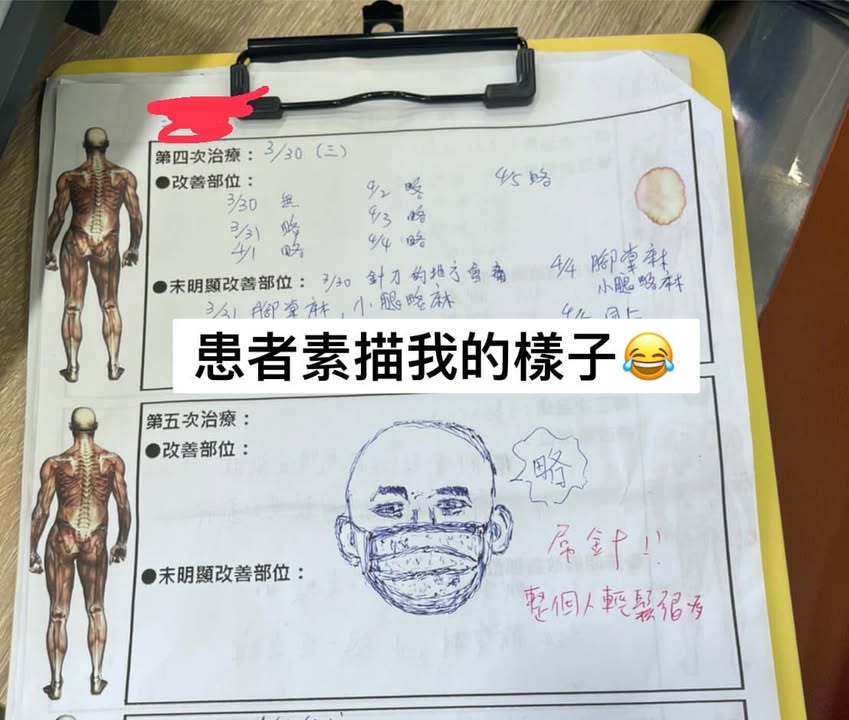 第四次治療：3/30 (三)
●改善部位：
3/30 無 4/2 略 4/5 略
3/31 略 4/3 略
4/1 略 4/4 略
●未明顯改善部位：3/30 針刀的地方會痛 4/4 腳掌麻
小腿略麻
3/31 腳掌麻，小腿略麻
患者素描我的樣子😂
第五次治療：
●改善部位：
略
●未明顯改善部位：
針!!
整個人輕鬆很多